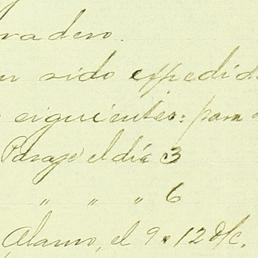 radero.
n sido expedid
siguientes: para
Parage el día 3
" " " 6
Alamo, el 9 o 12 d/c.